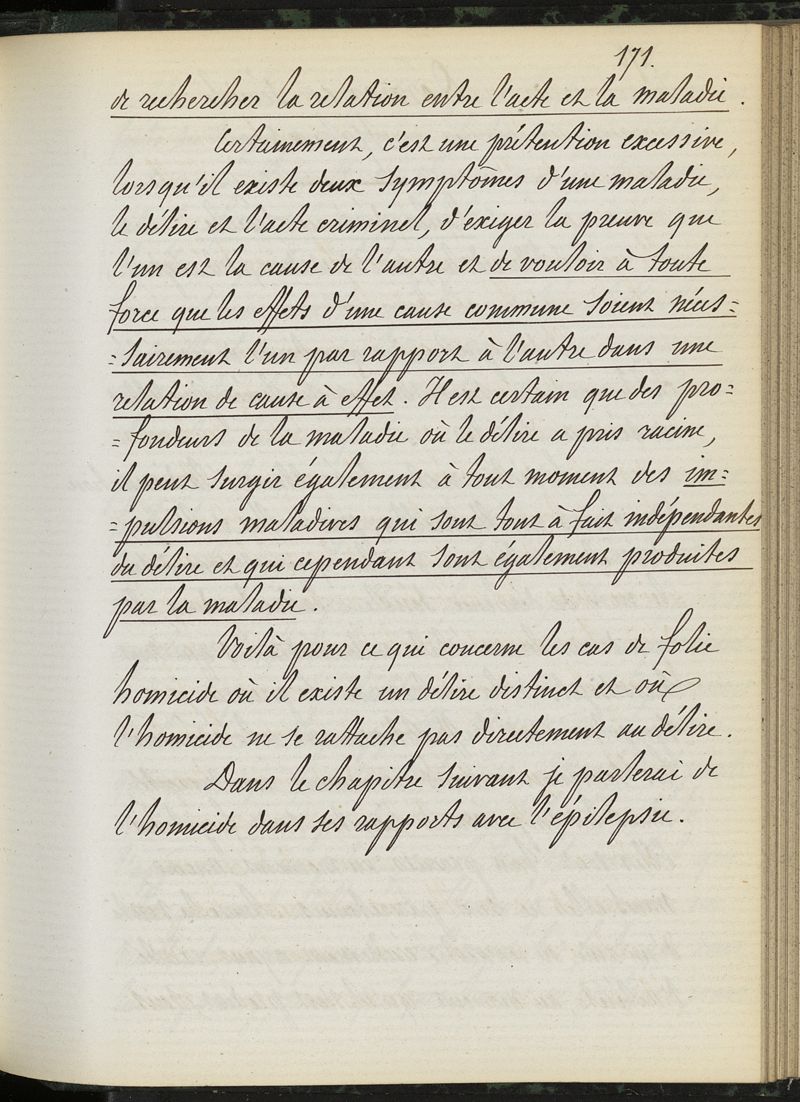 171.
de rechercher la relation entre l'acte et la maladie.
Certainement, c'est une prétention excessive,
lorsqu'il existe deux symptômes d'une maladie,
le délire et l'acte criminel, d'exiger la preuve que
l'un est la cause de l'autre et de vouloir à toute
force que les effets d'une cause commune soient néces=
=sairement l'un par rapport à l'autre dans une
relation de cause à effet. Il est certain que des pro=
=fondeurs de la maladie où le délire a pris racine,
il peut surgir également à tout moment des im=
=pulsions maladives qui sont tout à fait indépendantes
du délire et qui cependant sont également produites
par la maladie.
Voilà pour ce qui concerne les cas de folie
homicide où il existe un délire distinct et où
l'homicide ne se rattache pas directement au délire.
Dans le chapitre suivant je parlerai de
l'homicide dans ses rapports avec l'épilepsie.